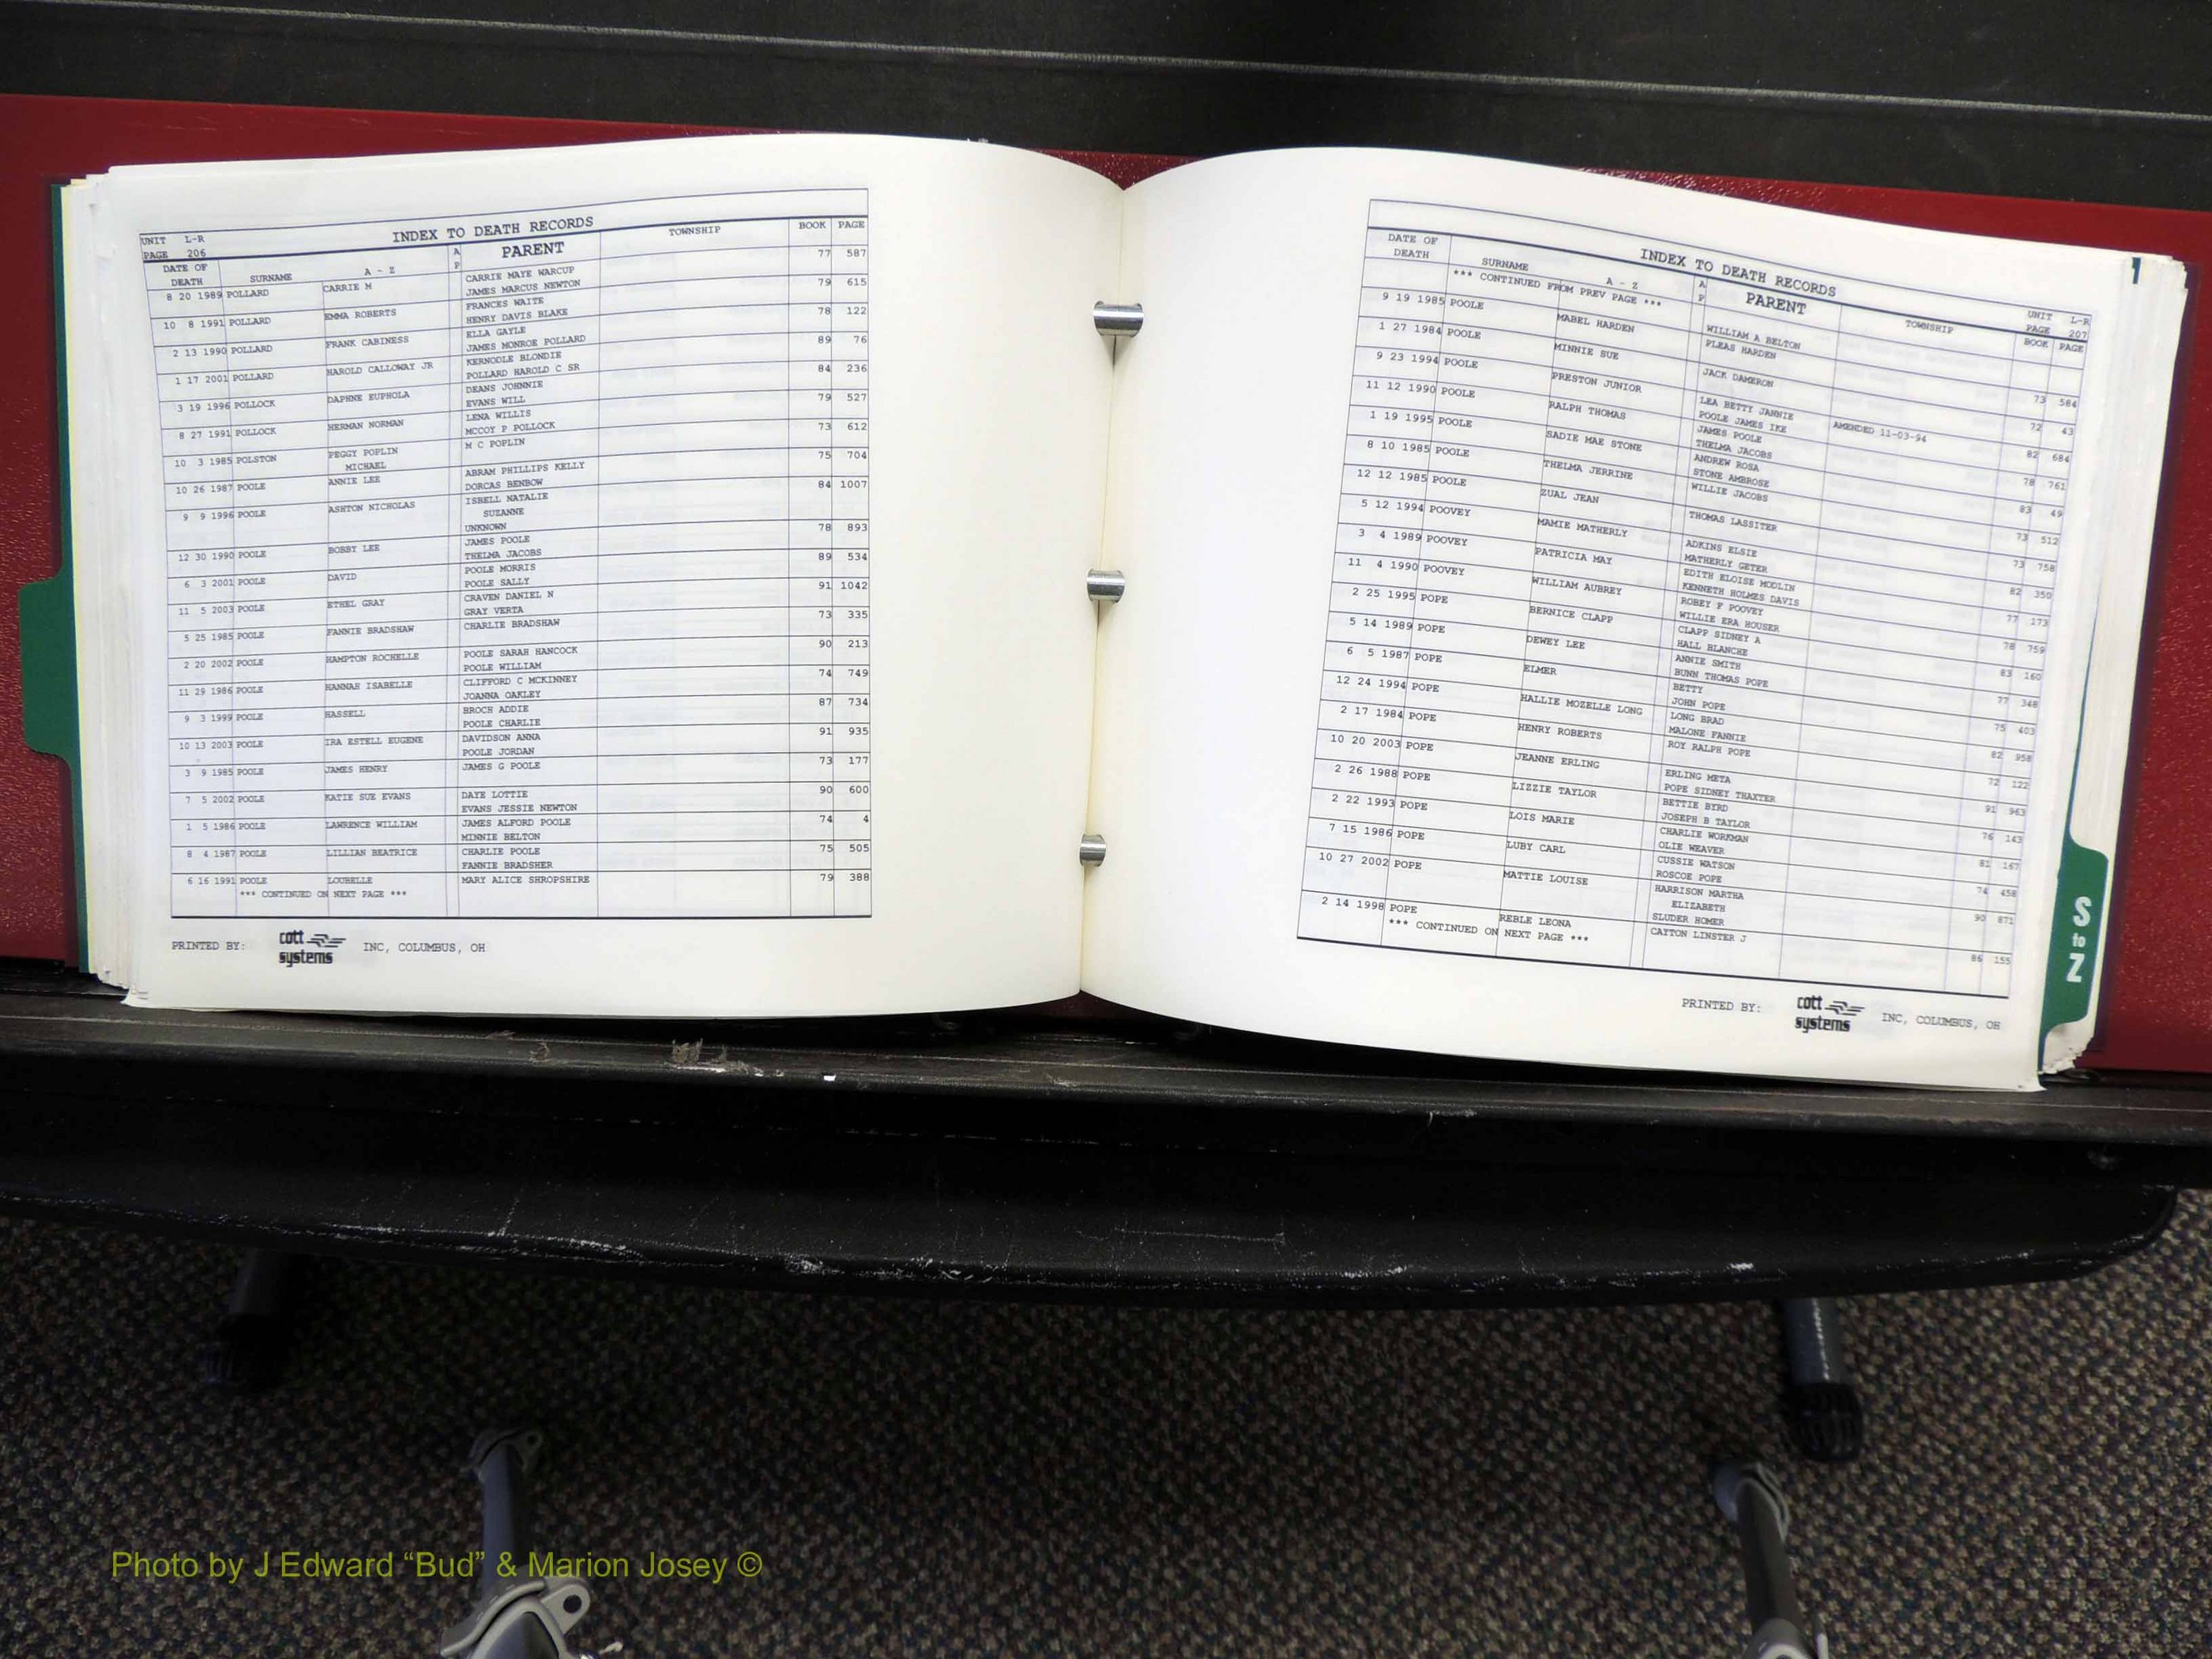 UNIT L-R
PAGE 206
INDEX TO DEATH RECORDS
DATE OF DEATH SURNAME A - Z A P PARENT TOWNSHIP BOOK PAGE
8 20 1989 POLLARD CARRIE M CARRIE MAYE WARCUP 77 587
JAMES MARCUS NEWTON
10 8 1991 POLLARD EMMA ROBERTS FRANCES WAITE 79 615
HENRY DAVIS BLAKE
2 13 1990 POLLARD FRANK CABINESS ELLA GAYLE 78 122
JAMES MONROE POLLARD
1 17 2001 POLLARD HAROLD CALLOWAY JR KERNODLE BLONDIE 89 76
POLLARD HAROLD C SR
3 19 1996 POLLOCK DAPHNE EUPHOLA DEANS JOHNNIE 84 236
EVANS WILL
8 27 1991 POLLOCK HERMAN NORMAN LENA WILLIS 79 527
MCCOY P POLLOCK
10 3 1985 POLSTON PEGGY POPLIN M C POPLIN 73 612
MICHAEL
10 26 1987 POOLE ANNIE LEE ABRAM PHILLIPS KELLY 75 704
DORCAS BENBOW
9 9 1996 POOLE ASHTON NICHOLAS ISBELL NATALIE 84 1007
SUZANNE
UNKNOWN
12 30 1990 POOLE BOBBY LEE JAMES POOLE 78 893
THELMA JACOBS
6 3 2001 POOLE DAVID POOLE MORRIS 89 534
POOLE SALLY
11 5 2003 POOLE ETHEL GRAY CRAVEN DANIEL N 91 1042
GRAY VERTA
5 25 1985 POOLE FANNIE BRADSHAW CHARLIE BRADSHAW 73 335
2 20 2002 POOLE HAMPTON ROCHELLE POOLE SARAH HANCOCK 90 213
POOLE WILLIAM
11 29 1986 POOLE HANNAH ISABELLE CLIFFORD C MCKINNEY 74 749
JOANNA OAKLEY
9 3 1999 POOLE HASSELL BROCH ADDIE 87 734
POOLE CHARLIE
10 13 2003 POOLE IRA ESTELL EUGENE DAVIDSON ANNA 91 935
POOLE JORDAN
3 9 1985 POOLE JAMES HENRY JAMES G POOLE 73 177
7 5 2002 POOLE KATIE SUE EVANS DAYE LOTTIE 90 600
EVANS JESSIE NEWTON
1 5 1986 POOLE LAWRENCE WILLIAM JAMES ALFORD POOLE 74 4
MINNIE BELTON
8 4 1987 POOLE LILLIAN BEATRICE CHARLIE POOLE 75 505
FANNIE BRADSHER
6 16 1991 POOLE LOUBELLE MARY ALICE SHROPSHIRE 79 388
*** CONTINUED ON NEXT PAGE ***
PRINTED BY: cott systems INC, COLUMBUS, OH
INDEX TO DEATH RECORDS
UNIT L-R
PAGE 207
DATE OF DEATH SURNAME A - Z A P PARENT TOWNSHIP BOOK PAGE
*** CONTINUED FROM PREV PAGE ***
WILLIAM A BELTON
9 19 1985 POOLE MABEL HARDEN PLEAS HARDEN 73 584
1 27 1984 POOLE MINNIE SUE JACK DAMERON 72 43
9 23 1994 POOLE PRESTON JUNIOR LEA BETTY JANNIE AMENDED 11-03-94 82 684
POOLE JAMES IKE
11 12 1990 POOLE RALPH THOMAS JAMES POOLE 78 761
THELMA JACOBS
1 19 1995 POOLE SADIE MAE STONE ANDREW ROSA 83 49
STONE AMBROSE
8 10 1985 POOLE THELMA JERRINE WILLIE JACOBS 73 512
12 12 1985 POOLE ZUAL JEAN THOMAS LASSITER 73 758
5 12 1994 POOVEY MAMIE MATHERLY ADKINS ELSIE 82 350
MATHERLY GETER
3 4 1989 POOVEY PATRICIA MAY EDITH ELOISE MODLIN 77 173
KENNETH HOLMES DAVIS
11 4 1990 POOVEY WILLIAM AUBREY ROBEY F POOVEY 78 759
WILLIE ERA HOUSER
2 25 1995 POPE BERNICE CLAPP CLAPP SIDNEY A 83 160
HALL BLANCHE
5 14 1989 POPE DEWEY LEE ANNIE SMITH 77 348
BUNN THOMAS POPE
6 5 1987 POPE ELMER BETTY 75 403
JOHN POPE
12 24 1994 POPE HALLIE MOZELLE LONG LONG BRAD 82 958
MALONE FANNIE
2 17 1984 POPE HENRY ROBERTS ROY RALPH POPE 72 122
10 20 2003 POPE JEANNE ERLING ERLING META 91 963
POPE SIDNEY THAXTER
2 26 1988 POPE LIZZIE TAYLOR BETTIE BYRD 76 143
JOSEPH B TAYLOR
2 22 1993 POPE LOIS MARIE CHARLIE WORKMAN 81 167
OLIE WEAVER
7 15 1986 POPE LUBY CARL CUSSIE WATSON 74 458
ROSCOE POPE
10 27 2002 POPE MATTIE LOUISE HARRISON MARTHA 90 871
ELIZABETH
SLUDER HOMER
2 14 1998 POPE REBLE LEONA CAYTON LINSTER J 86 155
*** CONTINUED ON NEXT PAGE ***
PRINTED BY: cott systems INC, COLUMBUS, OH
S to Z
Photo by J Edward “Bud” & Marion Josey ©